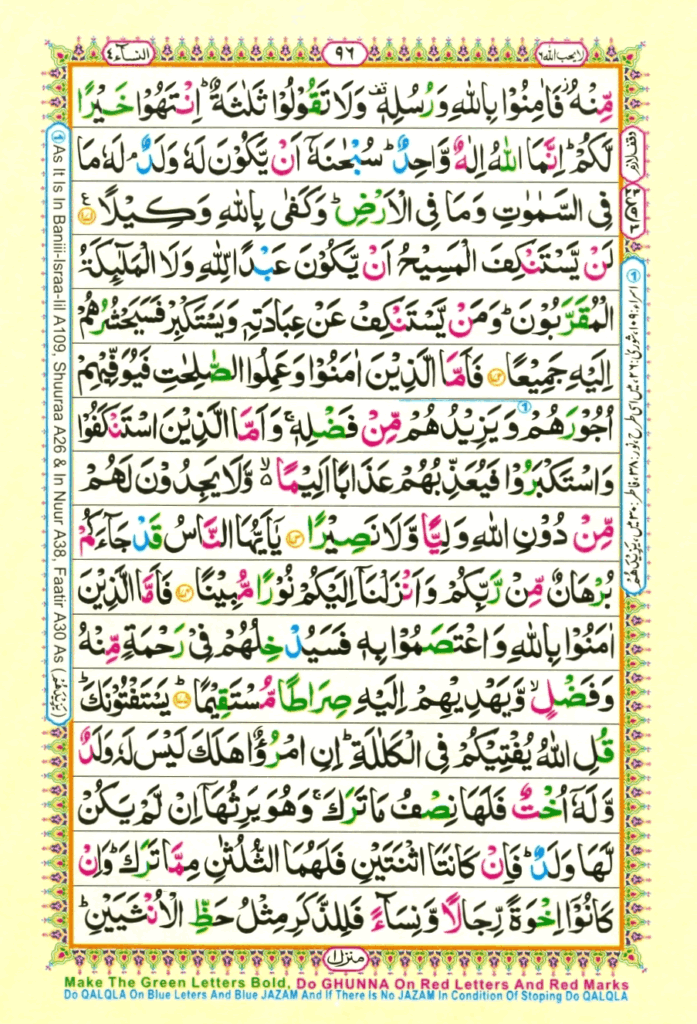 النساء ٤
٩٦
لا يحب الله ٦
مِّنْهُ ۫ فَاٰمِنُوْا بِاللّٰهِ وَرُسُلِهٖ ۚ۫ وَلَا تَقُوْلُوْا ثَلٰثَةٌ ؕ اِنْتَهُوْا خَيْرًا
لَّكُمْ ؕ اِنَّمَا اللّٰهُ اِلٰهٌ وَّاحِدٌ ؕ سُبْحٰنَهٗۤ اَنْ يَّكُوْنَ لَهٗ وَلَدٌ ۘ لَهٗ مَا
فِى السَّمٰوٰتِ وَمَا فِى الْاَرْضِ ؕ وَكَفٰى بِاللّٰهِ وَكِيْلًا ﴿۱۷۱﴾ ع
لَنْ يَّسْتَنْكِفَ الْمَسِيْحُ اَنْ يَّكُوْنَ عَبْدًا لِّلّٰهِ وَلَا الْمَلٰٓئِكَةُ
الْمُقَرَّبُوْنَ ؕ وَمَنْ يَّسْتَنْكِفْ عَنْ عِبَادَتِهٖ وَيَسْتَكْبِرْ فَسَيَحْشُرُهُمْ
اِلَيْهِ جَمِيْعًا ﴿۱۷۲﴾ فَاَمَّا الَّذِيْنَ اٰمَنُوْا وَعَمِلُوا الصّٰلِحٰتِ فَيُوَفِّيْهِمْ
اُجُوْرَهُمْ وَيَزِيْدُهُمْ مِّنْ فَضْلِهٖ ۚ وَاَمَّا الَّذِيْنَ اسْتَنْكَفُوْا
وَاسْتَكْبَرُوْا فَيُعَذِّبُهُمْ عَذَابًا اَلِيْمًا ۙ وَّلَا يَجِدُوْنَ لَهُمْ
مِّنْ دُوْنِ اللّٰهِ وَلِيًّا وَّلَا نَصِيْرًا ﴿۱۷۳﴾ يٰۤاَيُّهَا النَّاسُ قَدْ جَآءَكُمْ
بُرْهَانٌ مِّنْ رَّبِّكُمْ وَاَنْزَلْنَاۤ اِلَيْكُمْ نُوْرًا مُّبِيْنًا ﴿۱۷۴﴾ فَاَمَّا الَّذِيْنَ
اٰمَنُوْا بِاللّٰهِ وَاعْتَصَمُوْا بِهٖ فَسَيُدْخِلُهُمْ فِىْ رَحْمَةٍ مِّنْهُ
وَفَضْلٍ ۙ وَّيَهْدِيْهِمْ اِلَيْهِ صِرَاطًا مُّسْتَقِيْمًا ﴿۱۷۵﴾ يَسْتَفْتُوْنَكَ ؕ
قُلِ اللّٰهُ يُفْتِيْكُمْ فِى الْكَلٰلَةِ ؕ اِنِ امْرُؤٌا هَلَكَ لَيْسَ لَهٗ وَلَدٌ
وَّلَهٗۤ اُخْتٌ فَلَهَا نِصْفُ مَا تَرَكَ ۚ وَهُوَ يَرِثُهَاۤ اِنْ لَّمْ يَكُنْ
لَّهَا وَلَدٌ ؕ فَاِنْ كَانَتَا اثْنَتَيْنِ فَلَهُمَا الثُّلُثٰنِ مِمَّا تَرَكَ ؕ وَاِنْ
كَانُوْۤا اِخْوَةً رِّجَالًا وَّنِسَآءً فَلِلذَّكَرِ مِثْلُ حَظِّ الْاُنْثَيَيْنِ ؕ
منزل ١
وقف لازم
① As It Is In Baniii-Israa-Iil A109, Shuuraa A26 & In Nuur A38, Faatir A30 As (يَزِيْدَهُمْ)
Make The Green Letters Bold, Do GHUNNA On Red Letters And Red Marks
Do QALQLA On Blue Leters And Blue JAZAM And If There Is No JAZAM In Condition Of Stoping Do QALQLA